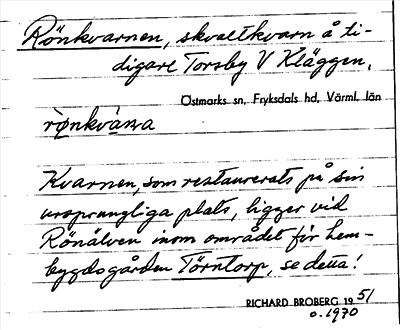 Rönkvarnen, skvaltkvarn å ti-
digare Torsby V Kläggen.
Östmarks sn, Fryksdals hd, Värml. län
Kvarnen, som restaurerats på sin
ursprungliga plats, ligger vid
Rönälven inom området för hem-
bygdsgården Törntorp, se detta!
RICHARD BROBERG 1951
o. 1970